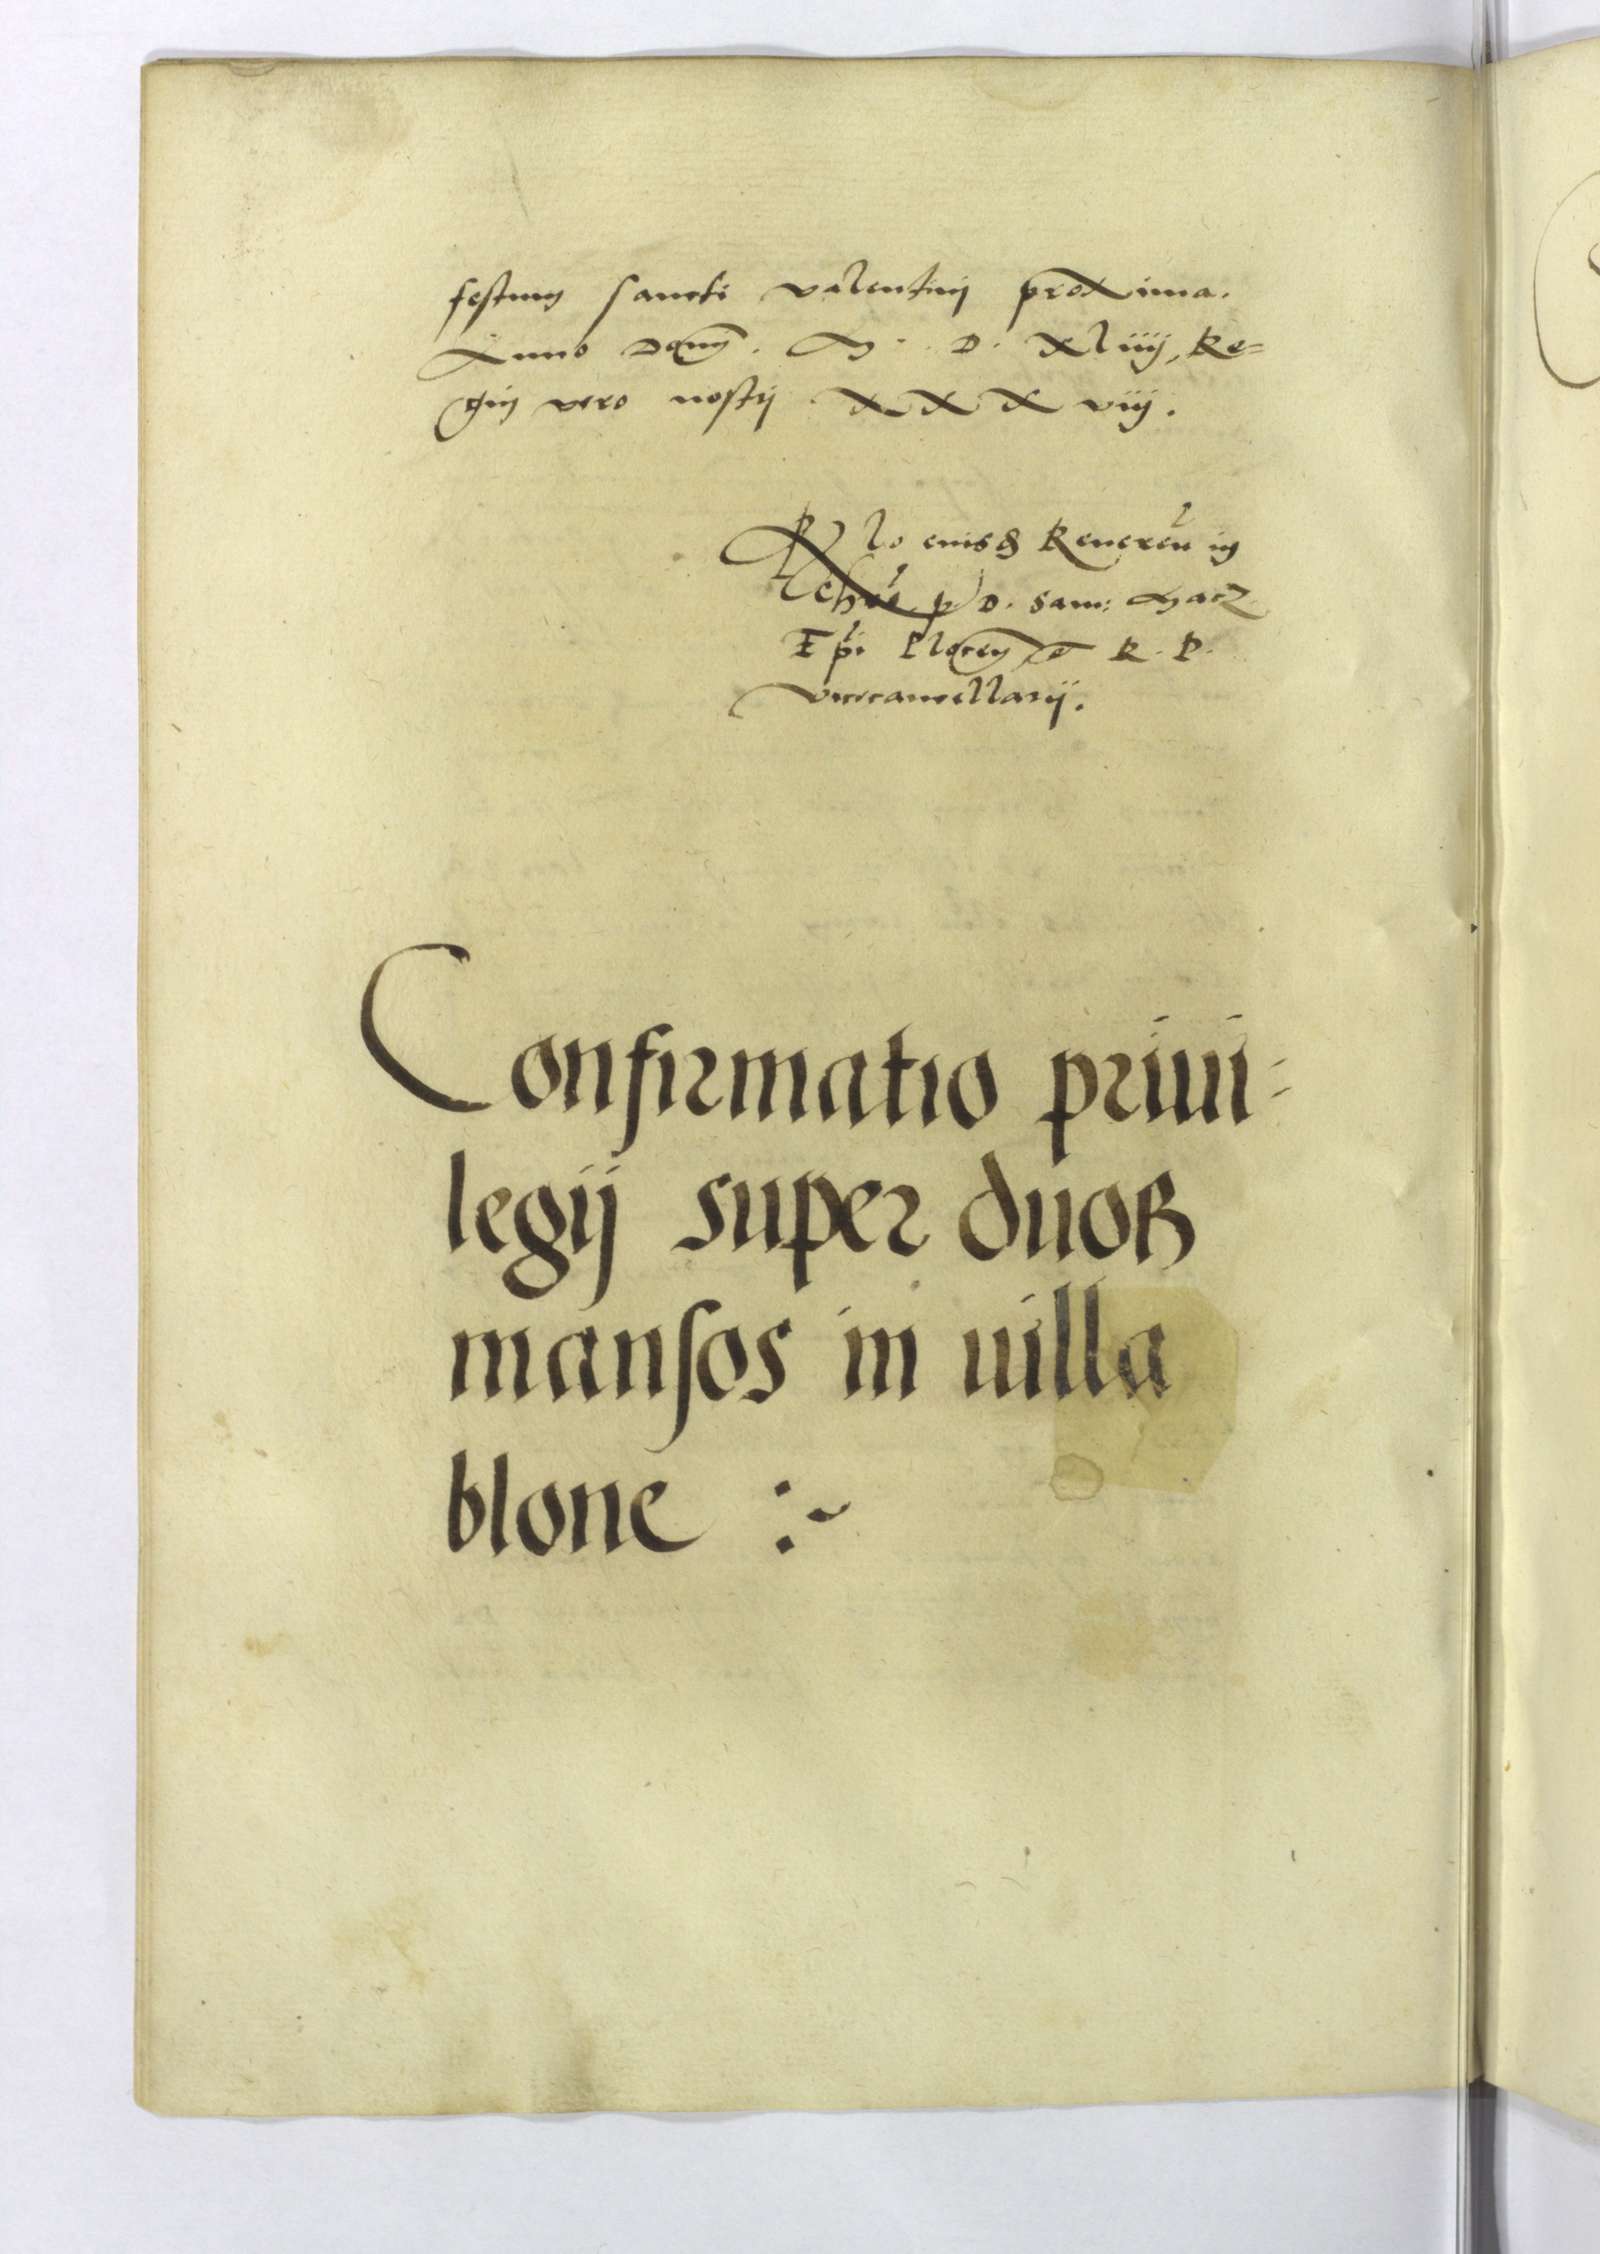 festum sancti valentinj proxima.
Anno Domj. M. D. xliiij, Re=
gnj vero nostrj xxx viij.
Rlo eiusd Reueren in
Chro p D. sam: Macz
Epi Plocen R. P.
vicecancellarij.
Confirmatio priui-
legij super duoꝶ
manſos in uilla
blone :~